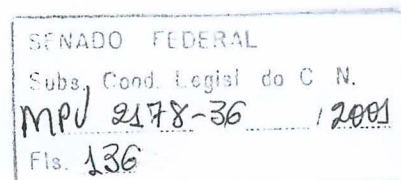 SENADO FEDERAL
Subs. Cond. Legisl do C N.
MPV 2178-36 / 2001
Fls. 136